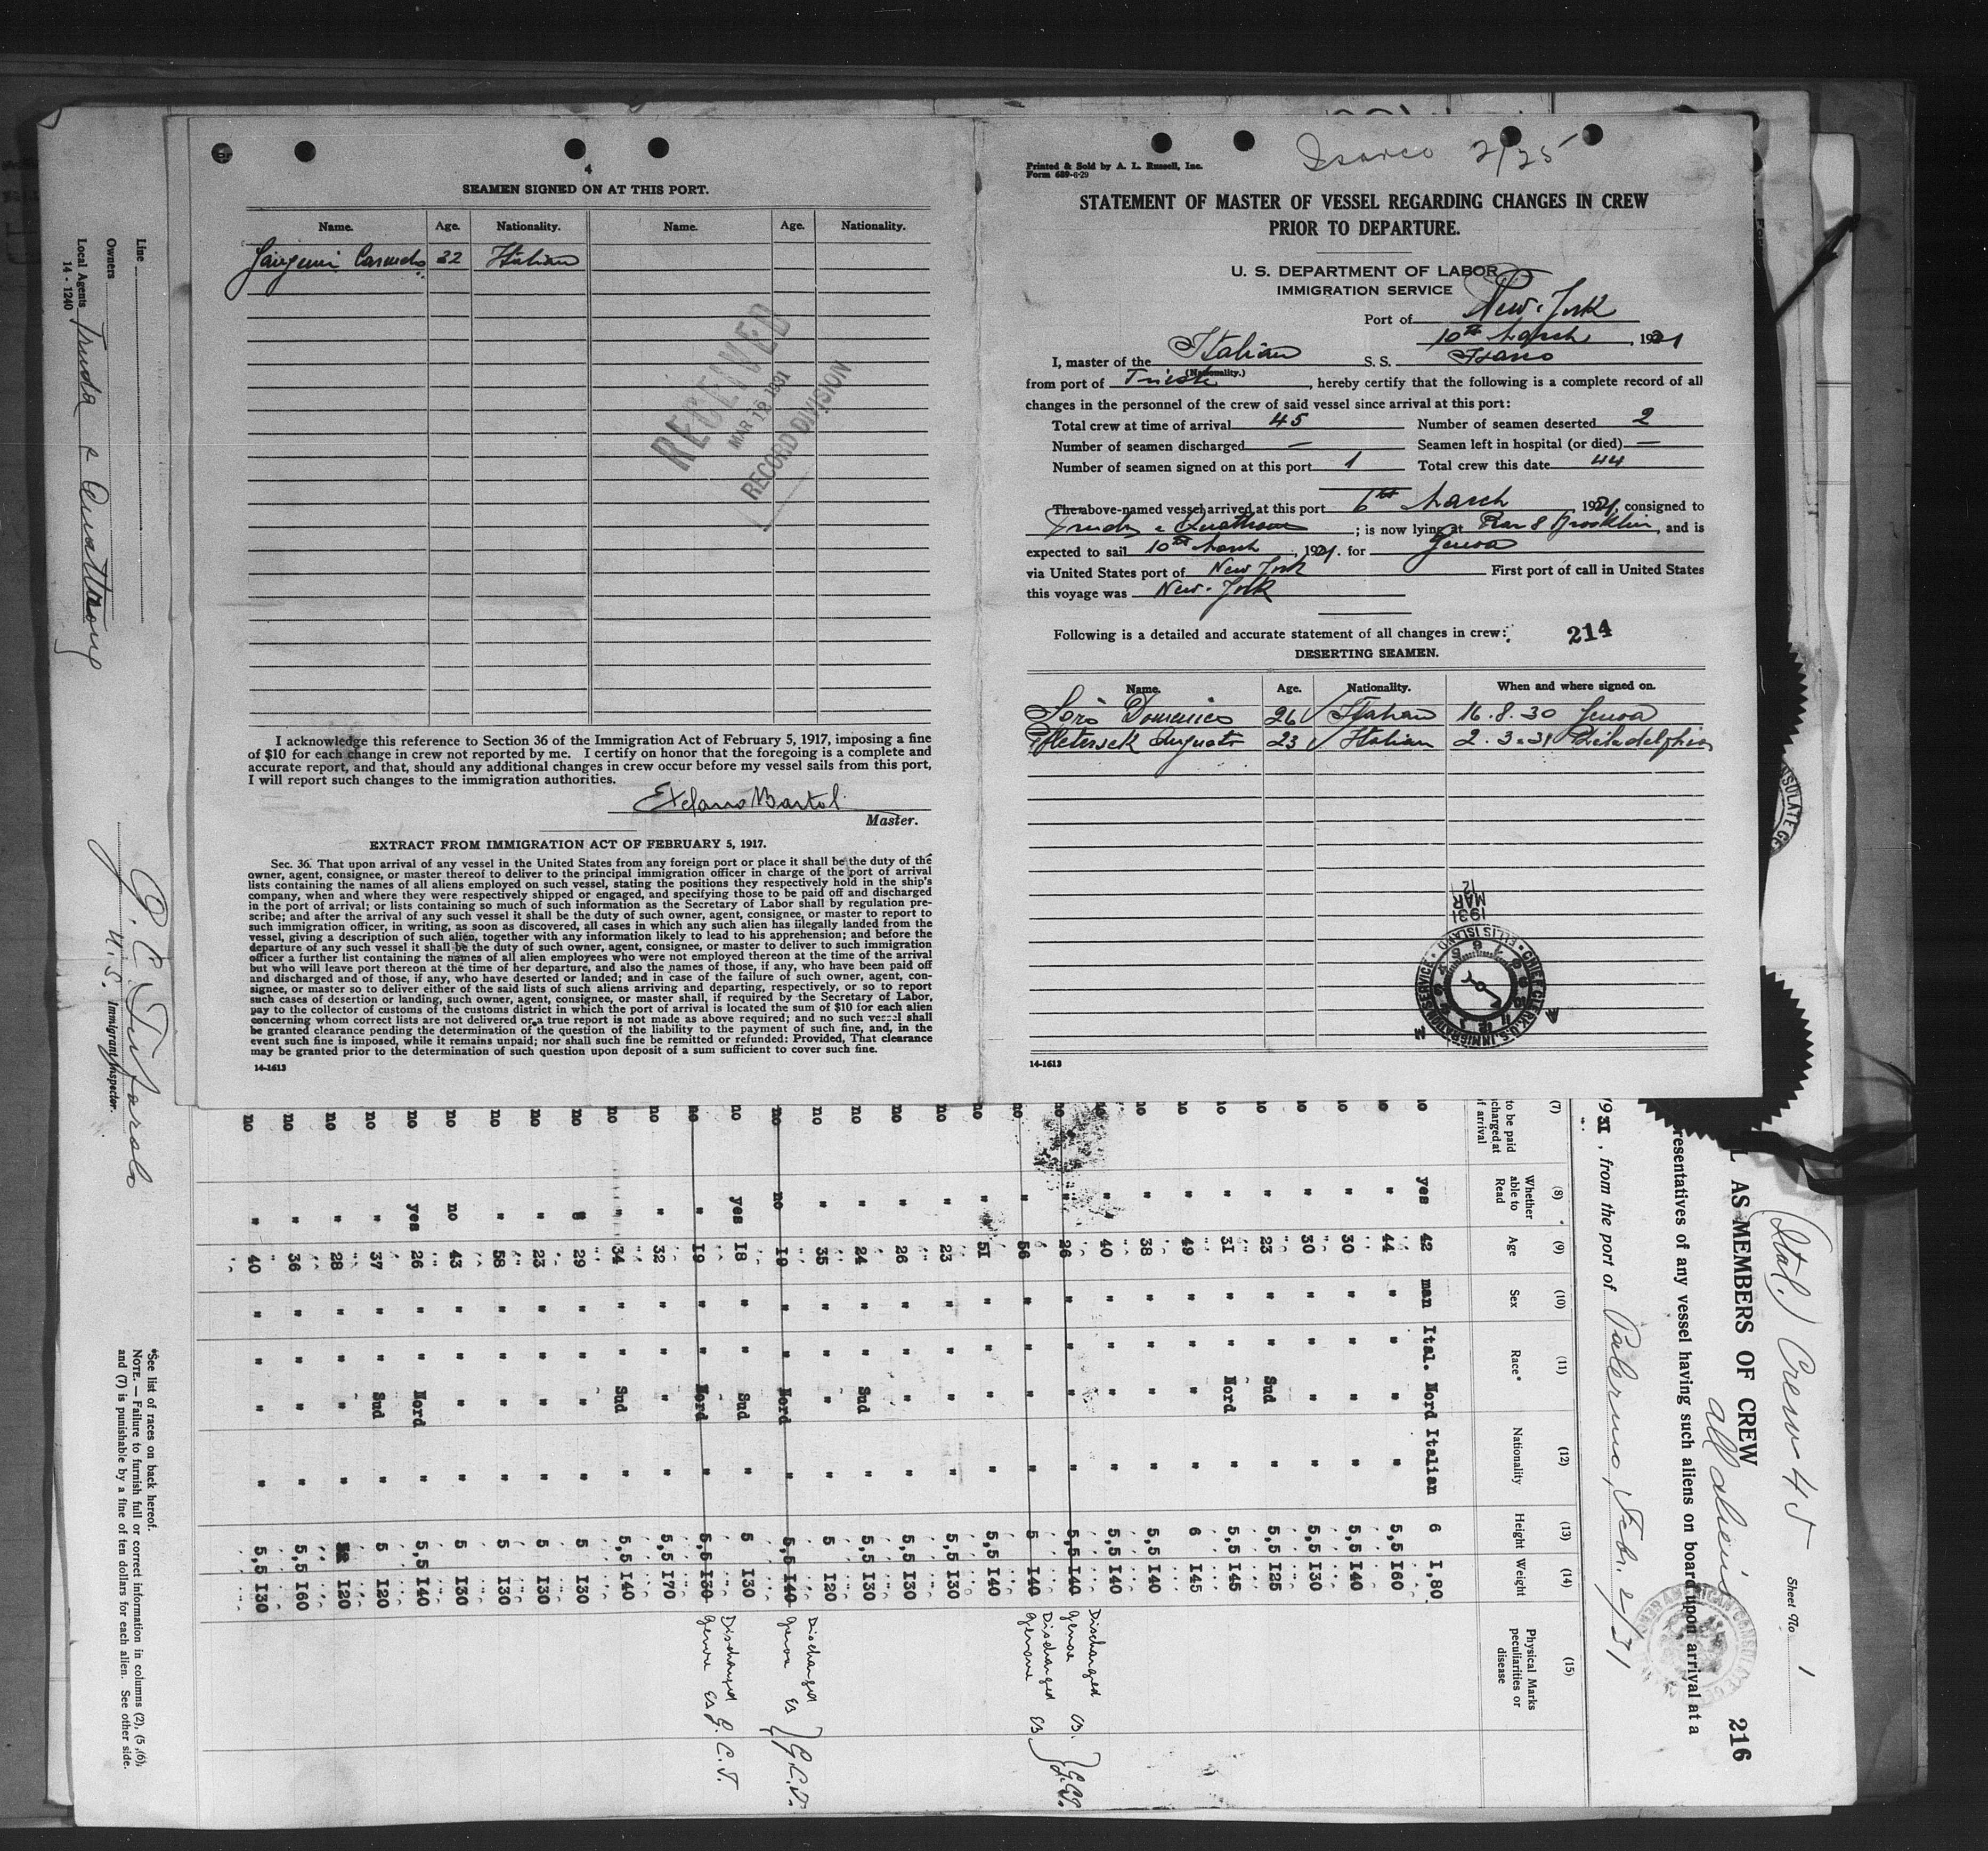 4
SEAMEN SIGNED ON AT THIS PORT.
Name. Age. Nationality. Name. Age. Nationality.
32 Italian
RECEIVED
MAR 1931
RECORD DIVISION
I acknowledge this reference to Section 36 of the Immigration Act of February 5, 1917, imposing a fine
of $10 for each change in crew not reported by me. I certify on honor that the foregoing is a complete and
accurate report, and that, should any additional changes in crew occur before my vessel sails from this port,
I will report such changes to the immigration authorities.
Bartol
Master.
EXTRACT FROM IMMIGRATION ACT OF FEBRUARY 5, 1917.
Sec. 36. That upon arrival of any vessel in the United States from any foreign port or place it shall be the duty of the
owner, agent, consignee, or master thereof to deliver to the principal immigration officer in charge of the port of arrival
lists containing the names of all aliens employed on such vessel, stating the positions they respectively hold in the ship's
company, when and where they were respectively shipped or engaged, and specifying those to be paid off and discharged
in the port of arrival; or lists containing so much of such information as the Secretary of Labor shall by regulation pre-
scribe; and after the arrival of any such vessel it shall be the duty of such owner, agent, consignee, or master to report to
such immigration officer, in writing, as soon as discovered, all cases in which any such alien has illegally landed from the
vessel, giving a description of such alien, together with any information likely to lead to his apprehension; and before the
departure of any such vessel it shall be the duty of such owner, agent, consignee, or master to deliver to such immigration
officer a further list containing the names of all alien employees who were not employed thereon at the time of the arrival
but who will leave port thereon at the time of her departure, and also the names of those, if any, who have been paid off
and discharged and of those, if any, who have deserted or landed; and in case of the failure of such owner, agent, con-
signee, or master so to deliver either of the said lists of such aliens arriving and departing, respectively, or so to report
such cases of desertion or landing, such owner, agent, consignee, or master shall, if required by the Secretary of Labor,
pay to the collector of customs of the customs district in which the port of arrival is located the sum of $10 for each alien
concerning whom correct lists are not delivered or a true report is not made as above required; and no such vessel shall
be granted clearance pending the determination of the question of the liability to the payment of such fine, and, in the
event such fine is imposed, while it remains unpaid; nor shall such fine be remitted or refunded: Provided, That clearance
may be granted prior to the determination of such question upon deposit of a sum sufficient to cover such fine.
14-1613
Isarco 2/25
Printed & Sold by A. L. Russell, Inc.
Form 689-6-29
STATEMENT OF MASTER OF VESSEL REGARDING CHANGES IN CREW
PRIOR TO DEPARTURE.
U. S. DEPARTMENT OF LABOR
IMMIGRATION SERVICE
Port of New-York
10th March, 1931
I, master of the Italian S. S. Isarco
(Nationality.)
from port of Trieste, hereby certify that the following is a complete record of all
changes in the personnel of the crew of said vessel since arrival at this port:
Total crew at time of arrival 45 Number of seamen deserted 2
Number of seamen discharged — Seamen left in hospital (or died) —
Number of seamen signed on at this port 1 Total crew this date 44
The above-named vessel arrived at this port 6th March 1931, consigned to
; is now lying at 8 Brooklin, and is
expected to sail 10th March, 1931. for Genoa
via United States port of New York First port of call in United States
this voyage was New-York
Following is a detailed and accurate statement of all changes in crew:
214
DESERTING SEAMEN.
Name. Age. Nationality. When and where signed on.
Domenico 26 Italian 16.8.30 Genoa
23 Italian 2.3.31 Philadelphia
1931
MAR
12
CHIEF CLERK, U.S. IMMIGRATION SERVICE
ELLIS ISLAND
14-1613
(Ital.) Crew 45 Sheet No. 1
AS MEMBERS OF CREW 216
all aliens
resentatives of any vessel having such aliens on board upon arrival at a
1931, from the port of Palermo, Feb. 2/31
(7) (8) (9) (10) (11) (12) (13) (14) (15)
to be paid
charged at
f arrival
Whether
able to
Read
Age
Sex
Race*
Nationality
Height
Weight
Physical Marks
peculiarities or
disease
no yes 42 man Ital. Nord Italian 6 1,80
no " 44 " " " " 5,5 160
no " 30 " " " " 5,5 140
no " 30 " " " " 5,5 130
no " 23 " " Sud " 5,5 125
no " 31 " " Nord " 5,5 145
no " 49 " " " " 6 145
no " 38 " " " " 5,5 140
no " 40 " " " " 5,5 140
no " 26 " " " " 5,5 140 Discharged Genoa EB.
no " 56 " " " " 5 140 Discharged Genova EB
no " 51 " " " " 5,5 140
no " 23 " " " " 5,5 130
no " 26 " " " " 5,5 130
no " 24 " " Sud " 5,5 130
no " 35 " " " " 5 120
no no 19 " " Nord " 5,5 140 Discharged Genoa EB G.C.T.
no yes 18 " " Sud " 5 130
no " 19 " " Nord " 5,5 130 Discharged Genova EB G.C.T.
no " 32 " " " " 5,5 170
no " 34 " " Sud " 5,5 140
no " 29 " " " " 5 130
no " 23 " " " " 5 130
no " 58 " " " " 5 130
no no 43 " " " " 5 130
no yes 26 " " Nord " 5,5 140
no " 37 " " Sud " 5 120
no " 28 " " " " 120
no " 36 " " " " 5,5 160
no " 40 " " " " 5,5 130
*See list of races on back hereof.
NOTE. — Failure to furnish full or correct information in columns (2), (5), (6),
and (7) is punishable by a fine of ten dollars for each alien. See other side.
Line
Owners
Local Agents Truda & Quattrone
14-1240
U. S. Immigrant Inspector.